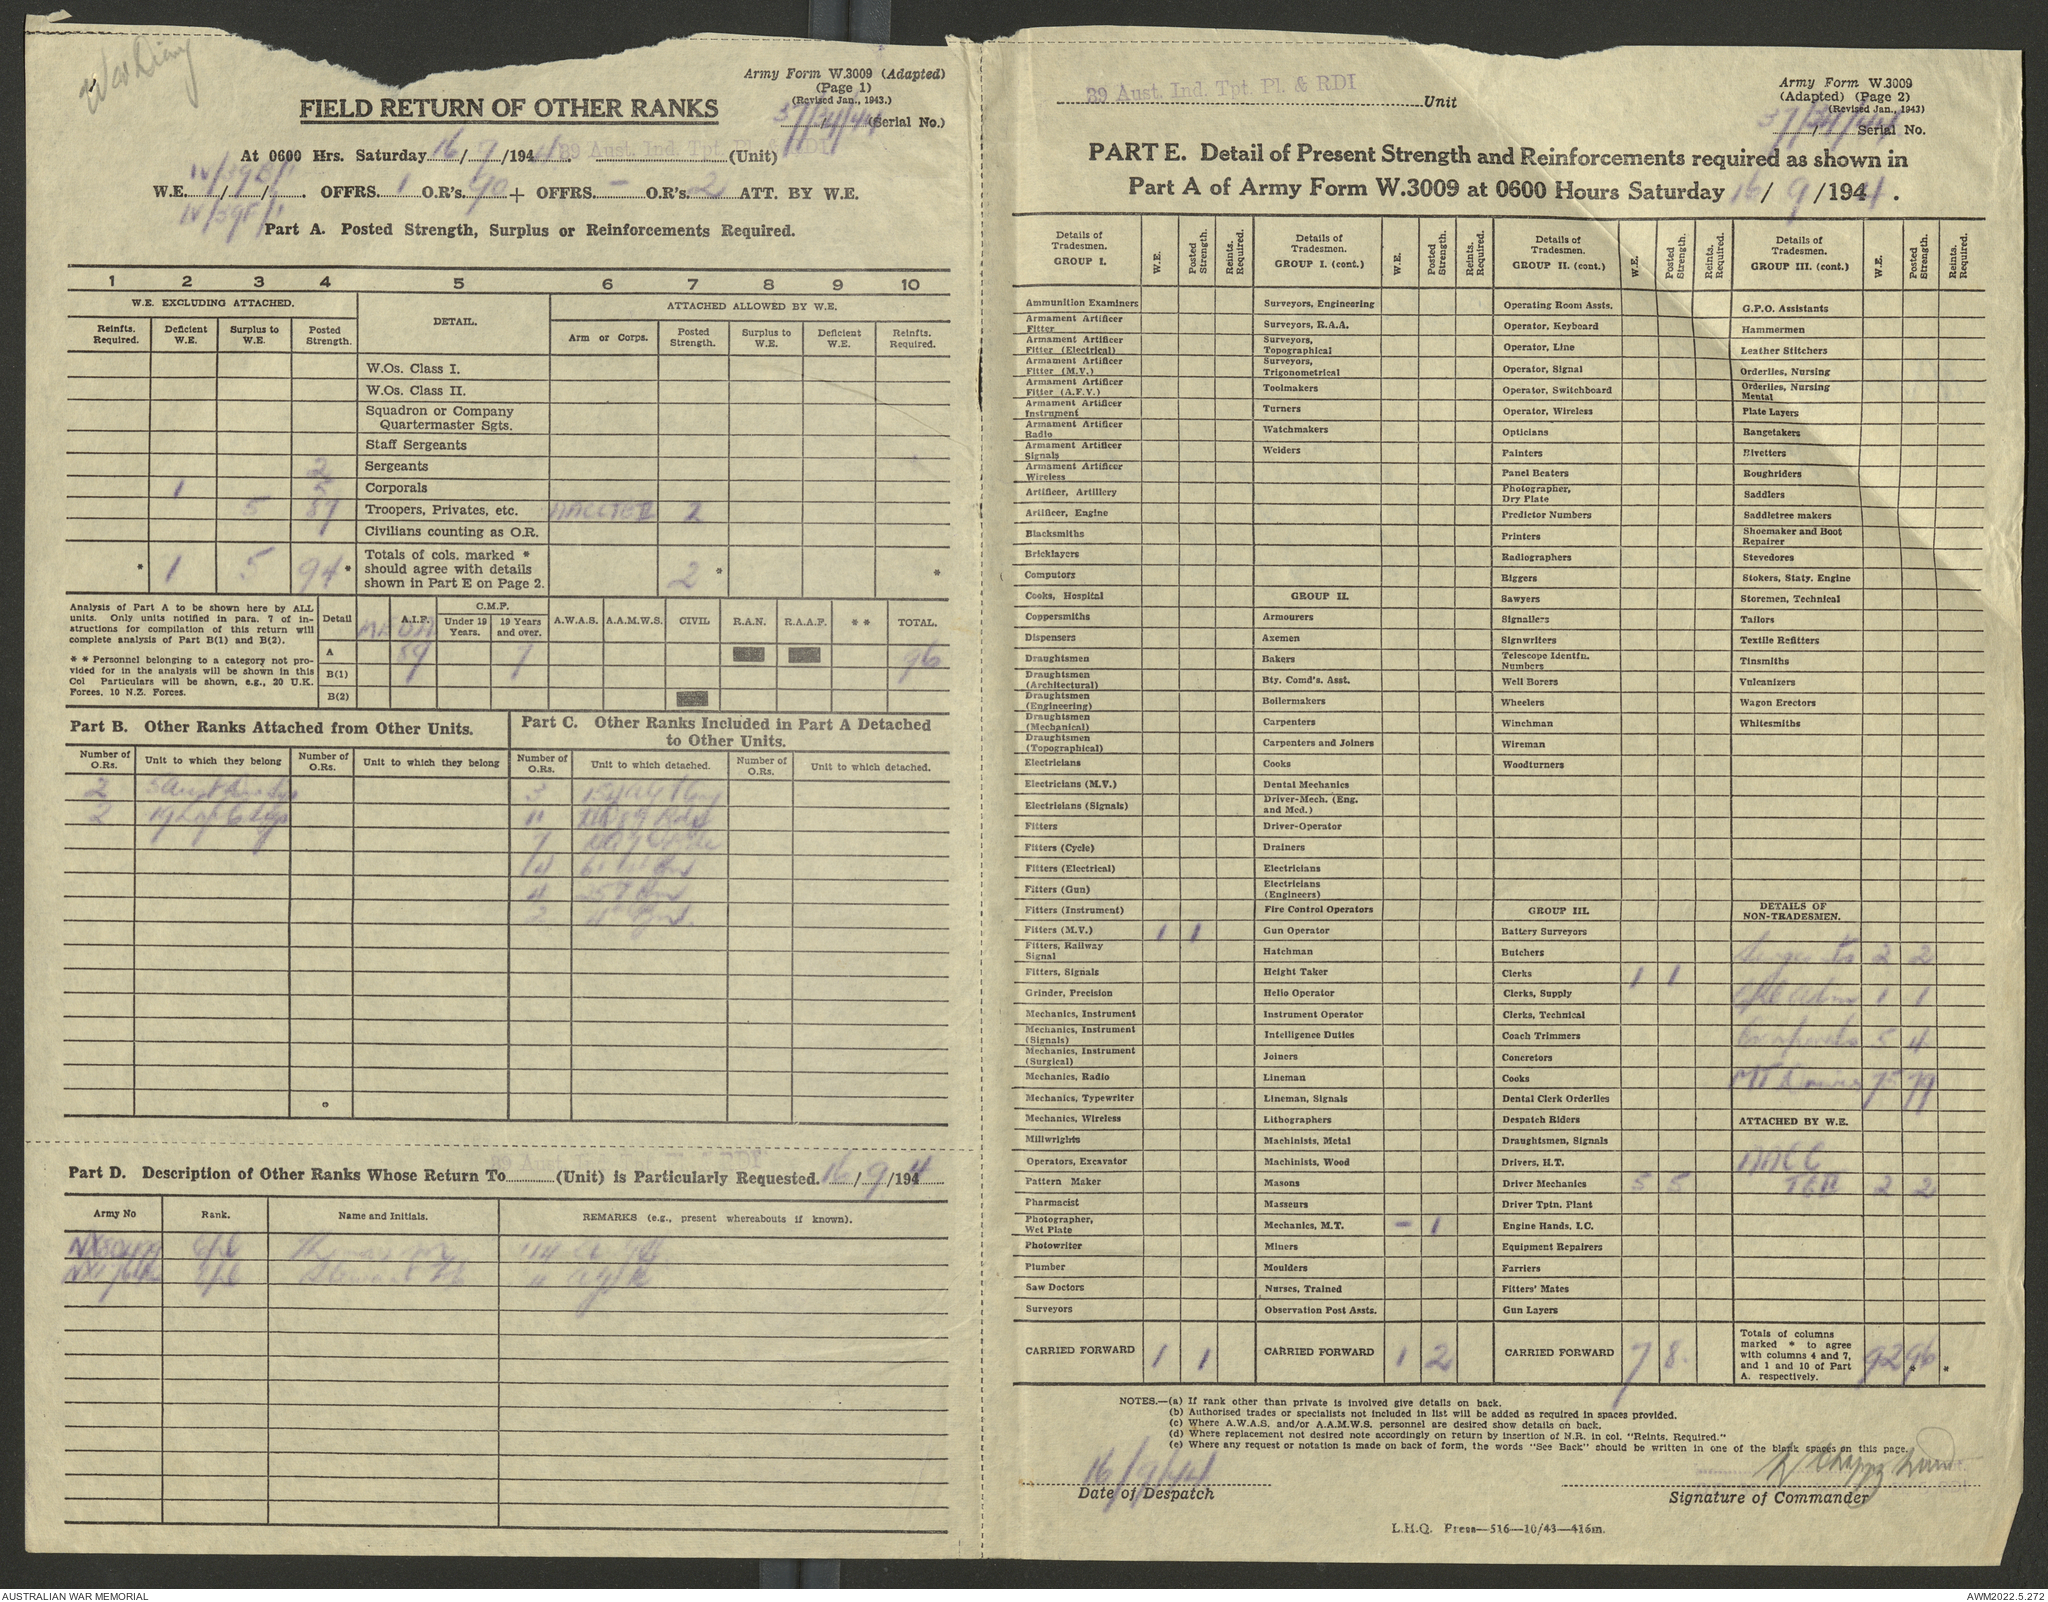 War Diary
Army Form W.3009 (Adapted)
(Page 1)
(Revised Jan., 1943.)
FIELD RETURN OF OTHER RANKS
37/34/44 (Serial No.)
At 0600 Hrs. Saturday 16/9/1944 39 Aust. Ind. Tpt. Pl. & RDI (Unit)
IV/39B/1
W.E. / / . OFFRS. 1 O.R's. 90 + OFFRS. - O.R's. 2 ATT. BY W.E.
IV/39F/1
Part A. Posted Strength, Surplus or Reinforcements Required.
1 2 3 4 5 6 7 8 9 10
W.E. EXCLUDING ATTACHED. DETAIL. ATTACHED ALLOWED BY W.E.
Reinfts. Required. Deficient W.E. Surplus to W.E. Posted Strength. Arm or Corps. Posted Strength. Surplus to W.E. Deficient W.E. Reinfts. Required.
W.Os. Class I.
W.Os. Class II.
Squadron or Company
Quartermaster Sgts.
Staff Sergeants
2 Sergeants
1 5 Corporals
5 87 Troopers, Privates, etc. AACC TG II 2
Civilians counting as O.R.
* 1 5 94 * Totals of cols. marked * should agree with details shown in Part E on Page 2. 2 * *
Analysis of Part A to be shown here by ALL
units. Only units notified in para. 7 of in-
structions for compilation of this return will
complete analysis of Part B(1) and B(2).
* * Personnel belonging to a category not pro-
vided for in the analysis will be shown in this
Col Particulars will be shown, e.g., 20 U.K.
Forces, 10 N.Z. Forces.
Detail A.I.F. C.M.F. Under 19 Years. 19 Years and over. A.W.A.S. A.A.M.W.S. CIVIL R.A.N. R.A.A.F. * * TOTAL.
A 89 7 96
B(1)
B(2)
Part B. Other Ranks Attached from Other Units.
Number of O.Rs. Unit to which they belong Number of O.Rs. Unit to which they belong
2 5 Aust Div
2
Part C. Other Ranks Included in Part A Detached
to Other Units.
Number of O.Rs. Unit to which detached. Number of O.Rs. Unit to which detached.
3
11
7
14
4
2
Part D. Description of Other Ranks Whose Return To 39 Aust. Ind. Tpt. Pl. & RDI (Unit) is Particularly Requested. 16/9/1944
Army No Rank. Name and Initials. REMARKS (e.g., present whereabouts if known).
NX50479 Cpl
Cpl
39 Aust. Ind. Tpt. Pl. & RDI Unit
Army Form W.3009
(Adapted) (Page 2)
(Revised Jan., 1943)
37/34/44 Serial No.
PART E. Detail of Present Strength and Reinforcements required as shown in
Part A of Army Form W.3009 at 0600 Hours Saturday 16/9/1944.
Details of Tradesmen. GROUP I. W.E. Posted Strength. Reints. Required.
Ammunition Examiners
Armament Artificer Fitter
Armament Artificer Fitter (Electrical)
Armament Artificer Fitter (M.V.)
Armament Artificer Fitter (A.F.V.)
Armament Artificer Instrument
Armament Artificer Radio
Armament Artificer Signals
Armament Artificer Wireless
Artificer, Artillery
Artificer, Engine
Blacksmiths
Bricklayers
Computors
Cooks, Hospital
Coppersmiths
Dispensers
Draughtsmen
Draughtsmen (Architectural)
Draughtsmen (Engineering)
Draughtsmen (Mechanical)
Draughtsmen (Topographical)
Electricians
Electricians (M.V.)
Electricians (Signals)
Fitters
Fitters (Cycle)
Fitters (Electrical)
Fitters (Gun)
Fitters (Instrument)
Fitters (M.V.) 1 1
Fitters, Railway Signal
Fitters, Signals
Grinder, Precision
Mechanics, Instrument
Mechanics, Instrument (Signals)
Mechanics, Instrument (Surgical)
Mechanics, Radio
Mechanics, Typewriter
Mechanics, Wireless
Millwrights
Operators, Excavator
Pattern Maker
Pharmacist
Photographer, Wet Plate
Photowriter
Plumber
Saw Doctors
Surveyors
CARRIED FORWARD 1 1
Details of Tradesmen. GROUP I. (cont.) W.E. Posted Strength. Reints. Required.
Surveyors, Engineering
Surveyors, R.A.A.
Surveyors, Topographical
Surveyors, Trigonometrical
Toolmakers
Turners
Watchmakers
Welders
GROUP II.
Armourers
Axemen
Bakers
Bty. Comd's. Asst.
Boilermakers
Carpenters
Carpenters and Joiners
Cooks
Dental Mechanics
Driver-Mech. (Eng. and Med.)
Driver-Operator
Drainers
Electricians
Electricians (Engineers)
Fire Control Operators
Gun Operator
Hatchman
Height Taker
Helio Operator
Instrument Operator
Intelligence Duties
Joiners
Lineman
Lineman, Signals
Lithographers
Machinists, Metal
Machinists, Wood
Masons
Masseurs
Mechanics, M.T. - 1
Miners
Moulders
Nurses, Trained
Observation Post Assts.
CARRIED FORWARD 1 2
Details of Tradesmen. GROUP II. (cont.) W.E. Posted Strength. Reints. Required.
Operating Room Assts.
Operator, Keyboard
Operator, Line
Operator, Signal
Operator, Switchboard
Operator, Wireless
Opticians
Painters
Panel Beaters
Photographer, Dry Plate
Predictor Numbers
Printers
Radiographers
Riggers
Sawyers
Signallers
Signwriters
Telescope Identfn. Numbers
Well Borers
Wheelers
Winchman
Wireman
Woodturners
GROUP III.
Battery Surveyors
Butchers
Clerks 1 1
Clerks, Supply
Clerks, Technical
Coach Trimmers
Concretors
Cooks
Dental Clerk Orderlies
Despatch Riders
Draughtsmen, Signals
Drivers, H.T.
Driver Mechanics 5 5
Driver Tptn. Plant
Engine Hands, I.C.
Equipment Repairers
Farriers
Fitters' Mates
Gun Layers
CARRIED FORWARD 7 8.
Details of Tradesmen. GROUP III. (cont.) W.E. Posted Strength. Reints. Required.
G.P.O. Assistants
Hammermen
Leather Stitchers
Orderlies, Nursing
Orderlies, Nursing Mental
Plate Layers
Rangetakers
Rivetters
Roughriders
Saddlers
Saddletree makers
Shoemaker and Boot Repairer
Stevedores
Stokers, Staty. Engine
Storemen, Technical
Tailors
Textile Refitters
Tinsmiths
Vulcanizers
Wagon Erectors
Whitesmiths
DETAILS OF NON-TRADESMEN.
Sergeants 2 2
1 1
Corporals 5 4
MT Drivers 75 79
ATTACHED BY W.E.
AACC
TG II 2 2
Totals of columns marked * to agree with columns 4 and 7, and 1 and 10 of Part A. respectively. 92 96 * *
NOTES.—(a) If rank other than private is involved give details on back.
(b) Authorised trades or specialists not included in list will be added as required in spaces provided.
(c) Where A.W.A.S. and/or A.A.M.W.S. personnel are desired show details on back.
(d) Where replacement not desired note accordingly on return by insertion of N.R. in col. "Reints. Required."
(e) Where any request or notation is made on back of form, the words "See Back" should be written in one of the blank spaces on this page.
16/9/44
Date of Despatch
Signature of Commander
L.H.Q. Press—516—10/43—416m.
AUSTRALIAN WAR MEMORIAL
AWM2022.5.272